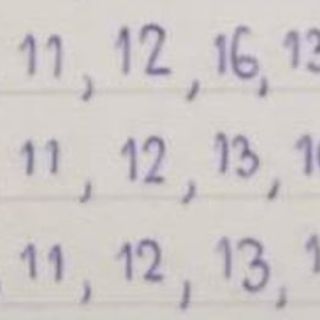 11, 12, 16, 13
11, 12, 13,
, 11, 12, 13,